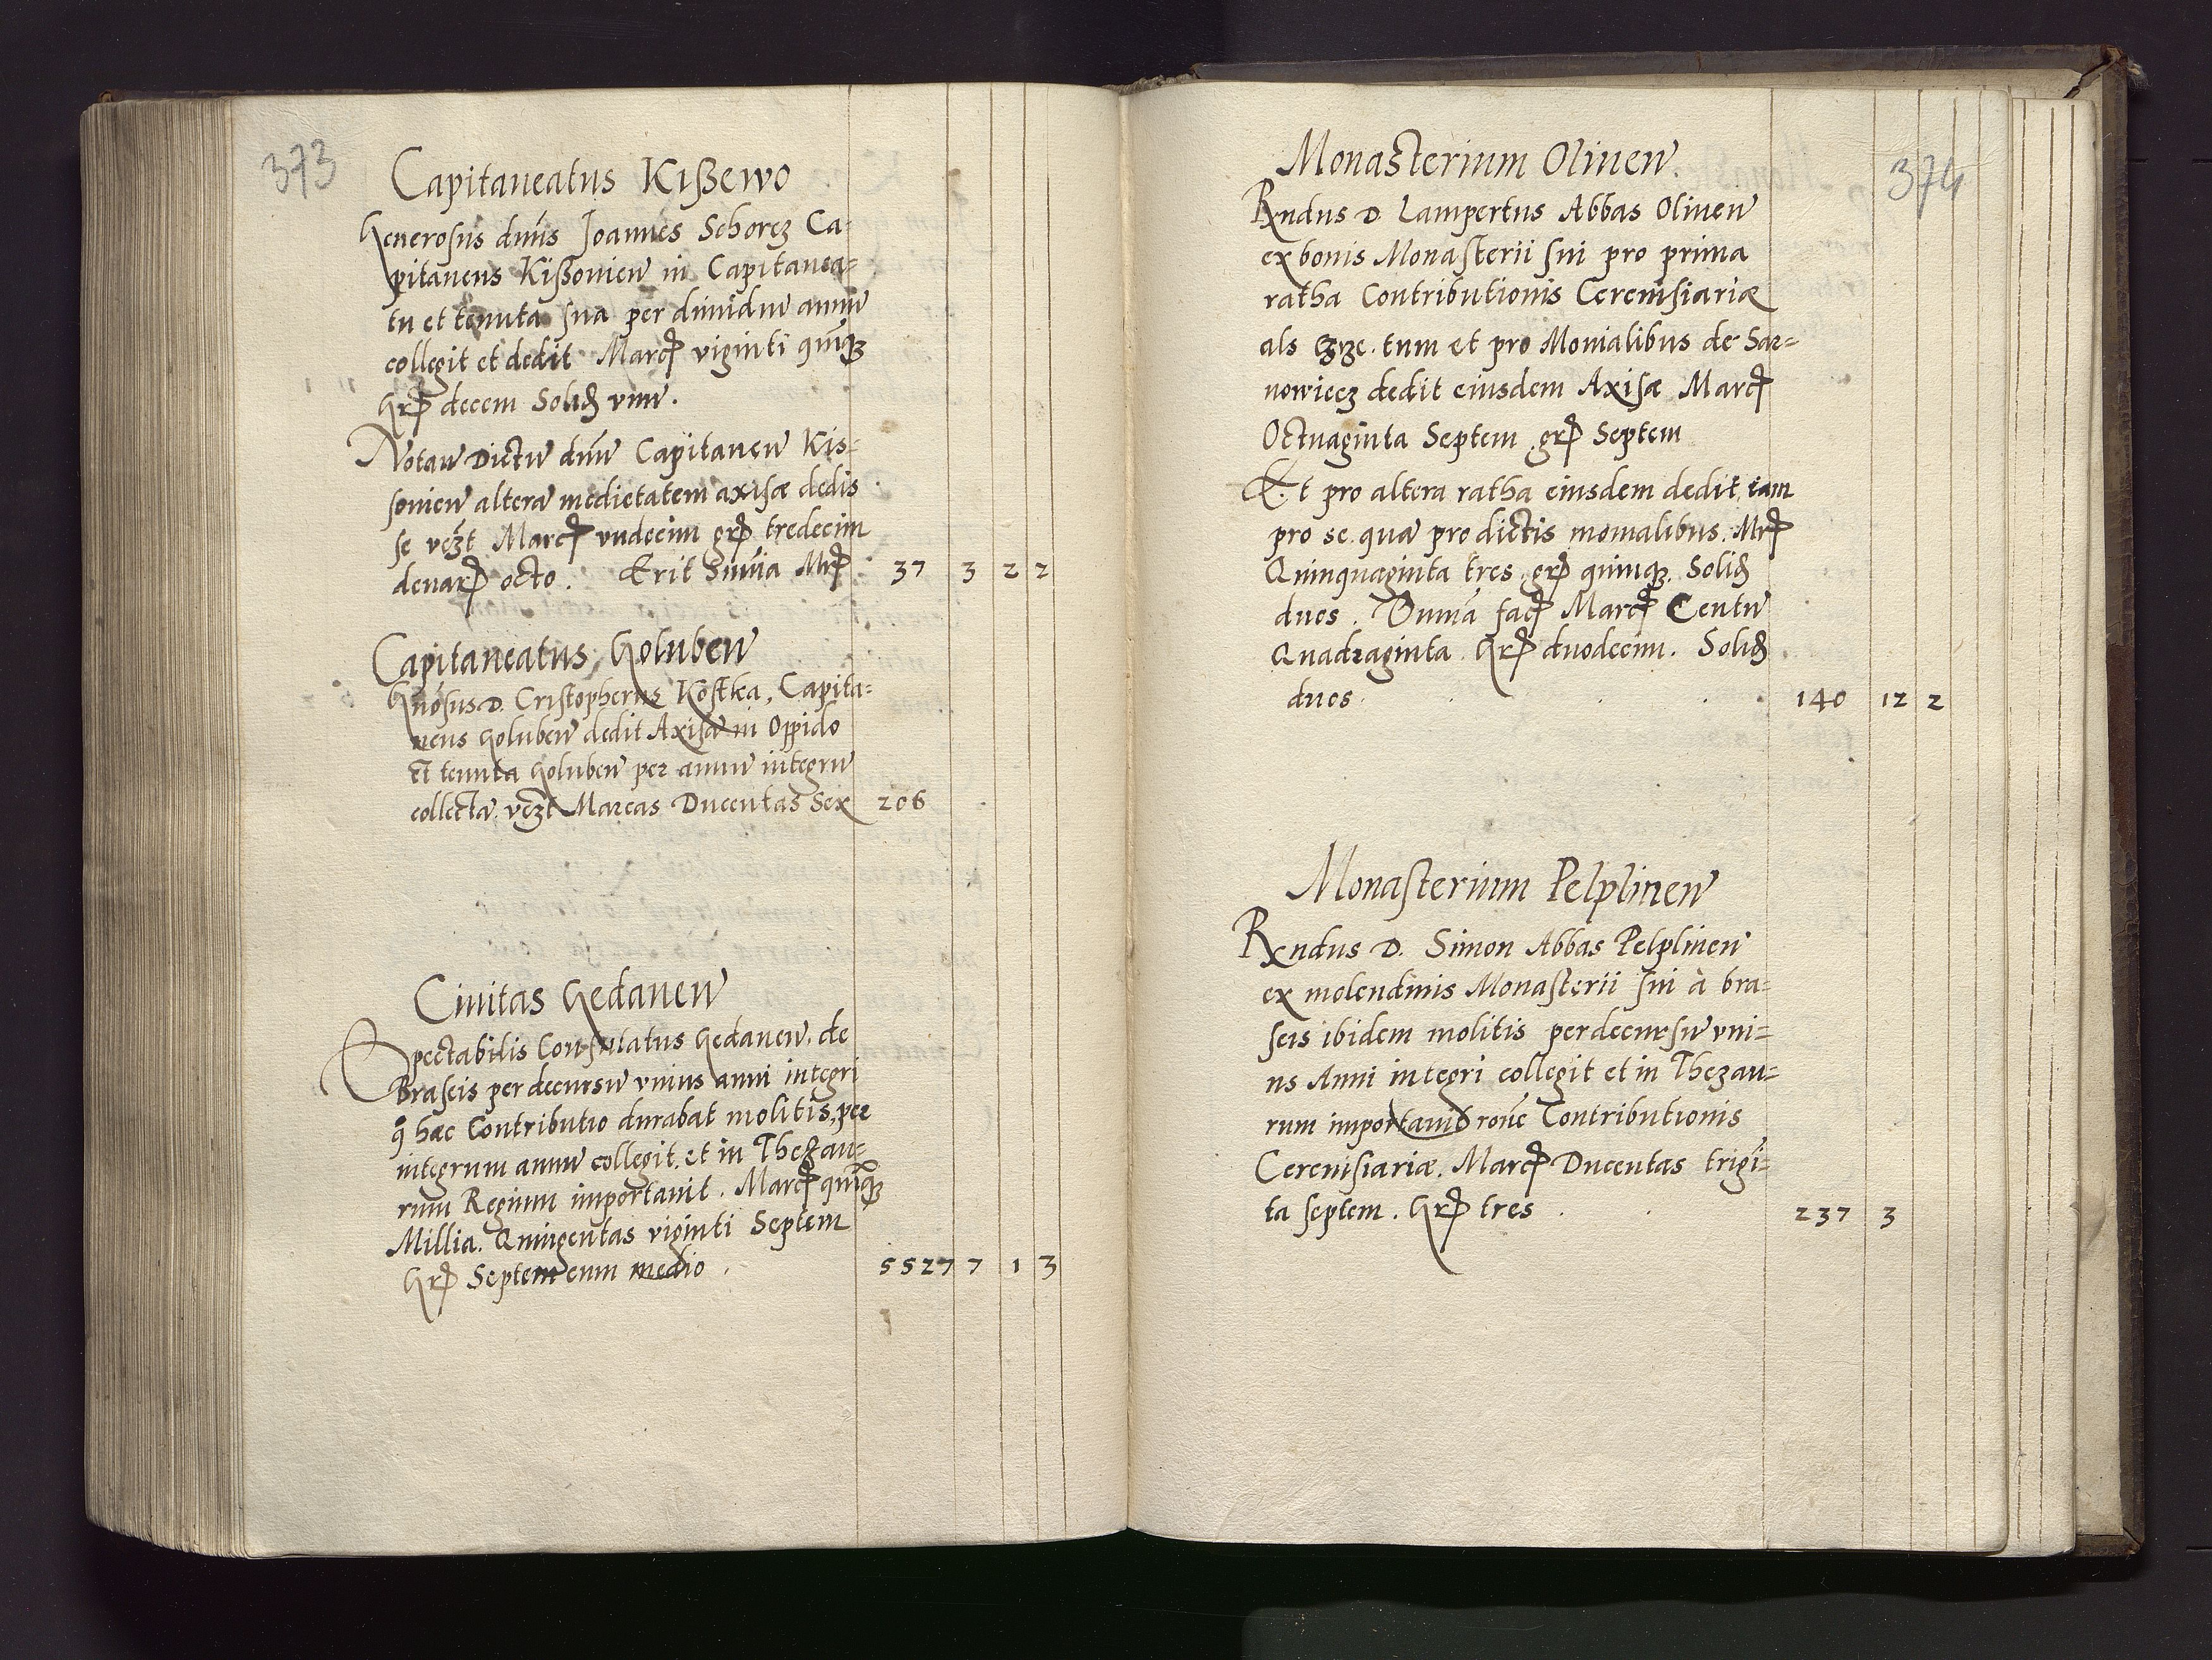 373
Capitaneatus Kißewo
Generosus dnūs Joannes Schorcz Ca=
pitaneus Kißonien̄ in Capitanea=
tu et tenuta sua per dimidiū annū
collegit et dedit Marc̄ viginti quinq̄
Gr̄ decem Solid̄ vnū.
Notan̄ Dictū dnū Capitaneū Kis=
sonien̄ alterā medietatem axisæ dedis
se vcz̄t Marc̄ vndecim gr̄ tredecim
denar̄ octo. Erit Sum̄a Mr̄ 37 3 2 2
Capitaneatus Goluben̄
Gnōsus D. Cristopherus Kostka, Capita=
neus Goluben̄ dedit Axisā in Oppido
et tenuta Goluben̄ per annū integrū
collectā vcz̄t Marcas Ducentas Sex 206
Ciuitas Gedanen̄
Spectabilis Consulatus Gedanen̄. de
Braseis per decursū vnius anni integri
q̄ hæc Contributio durabat molitis, per
integrum annū collegit et in Thezau=
rum Regium importauit. Marc̄ quinq̄
Millia. Quingentas viginti Septem
Gr̄ Septem cum medio 5527 7 1 3
374
Monasterium Oliuen̄.
Rndus D. Lampertus Abbas Oliuen̄
ex bonis Monasterii sui pro prima
ratha Contributionis Cereuisiariæ
als czę. tum et pro Monialibus de Sar=
nowiecz dedit eiusdem Axisæ Marc̄
Octuaginta Septem gr̄ Septem
Et pro altera ratha eiusdem dedit, tam
pro se quā pro dictis monialibus. Mr̄
Quinquaginta tres, gr̄ quinq̄. Solid̄
duos. Summā fac̄ Marc̄ Centū
Quadraginta Gr̄ duodecim. Solid̄
duos 140 12 2
Monasterium Pelplinen̄
Rndus D. Simon Abbas Pelplinen̄
ex molendinis Monasterii sui à bra=
seis ibidem molitis per decursū vni=
us Anni integri collegit et in Thezau=
rum importauit ronē Contributionis
Cereuisiariæ. Marc̄ Ducentas trigī=
ta septem. Gr̄ tres 237 3